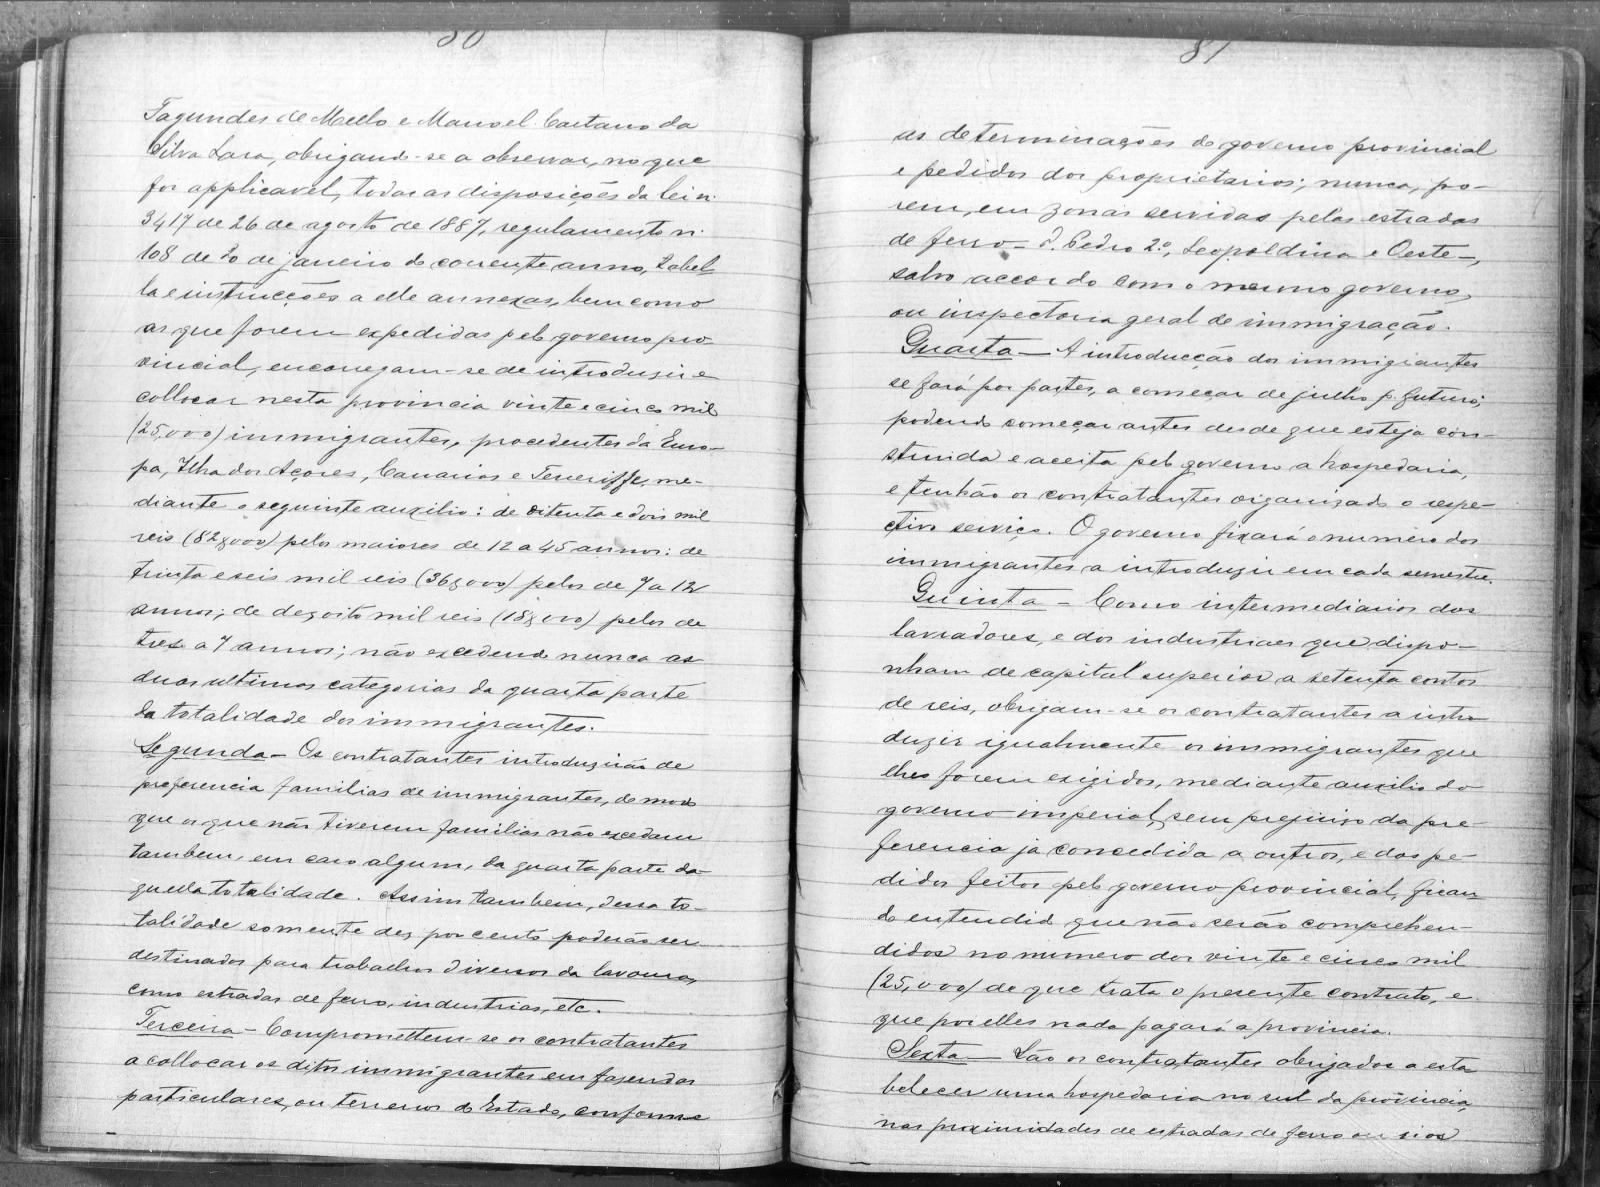 80
Fagundes de Mello e Manoel Caetano da
Silva Lara, obrigando-se a observar, no que
for applicavel, todas as disposições da lei n.
3417 de 26 de agosto de 1887, regulamento n.
108 de 20 de janeiro do corrente anno, tabel
la e instrucções a elle annexas, bem como
as que forem expedidas pelo governo pro
vincial, encarregam-se de introduzir e
collocar nesta provincia vinte e cinco mil
(25,000) immigrantes, procedentes da Euro-
pa, Ilha dos Açores, Canarias e Teneriffe, me-
diante o seguinte auxilio: de oitenta e dois mil
reis (82$000) pelos maiores de 12 a 45 annos: de
trinta e seis mil reis (36$000) pelos de 7 a 12
annos; de dezoito mil reis (18$000) pelos de
tres a 7 annos; não excedendo nunca as
duas ultimas categorias da quarta parte
da totalidade dos immigrantes.
Segunda - Os contratantes introduzirão de
preferencia familias de immigrantes, de modo
que os que não tiverem familias não excedam
tambem, em caso algum, da quarta parte da-
quella totalidade. Assim tambem, dessa to-
talidade somente dez por cento poderão ser
destinados para trabalhos diversos da lavoura,
como estradas de ferro, industrias, etc.
Terceira - Compromettem-se os contratantes
a collocar os ditos immigrantes em fazendas
particulares, ou terrenos do Estado, conforme
81
as determinações do governo provincial
e pedidos dos proprietarios; nunca, po-
rem, em zonas servidas pelas estradas
de ferro - D. Pedro 2º, Leopoldina e Oeste -,
salvo accordo com o mesmo governo,
ou inspectoria geral de immigração.
Quarta - A introducção dos immigrantes
se fará por partes, a começar de julho p. futuro;
podendo começar antes desde que esteja con-
struida e aceita pelo governo a hospedaria,
e tenhão os contratantes organizado o respe-
ctivo serviço. O governo fixará o numero dos
immigrantes a introduzir em cada semestre.
Quinta - Como intermediarios dos
lavradores, e dos industriaes que dispo-
nham de capital superior a setenta contos
de reis, obrigam-se os contratantes a intro
duzir igualmente os immigrantes que
lhes forem exigidos, mediante auxilio do
governo imperial, sem prejuizo da pre-
ferencia já concedida a outros, e dos pe-
didos feitos pelo governo provincial, fican
do entendido que não serão comprehen-
didos no numero dos vinte e cinco mil
(25,000) de que trata o presente contrato, e
que por elles nada pagará a provincia.
Sexta - São os contratantes obrigados a esta
belecer uma hospedaria no sul da provincia,
nas proximidades de estradas de ferro ou rios